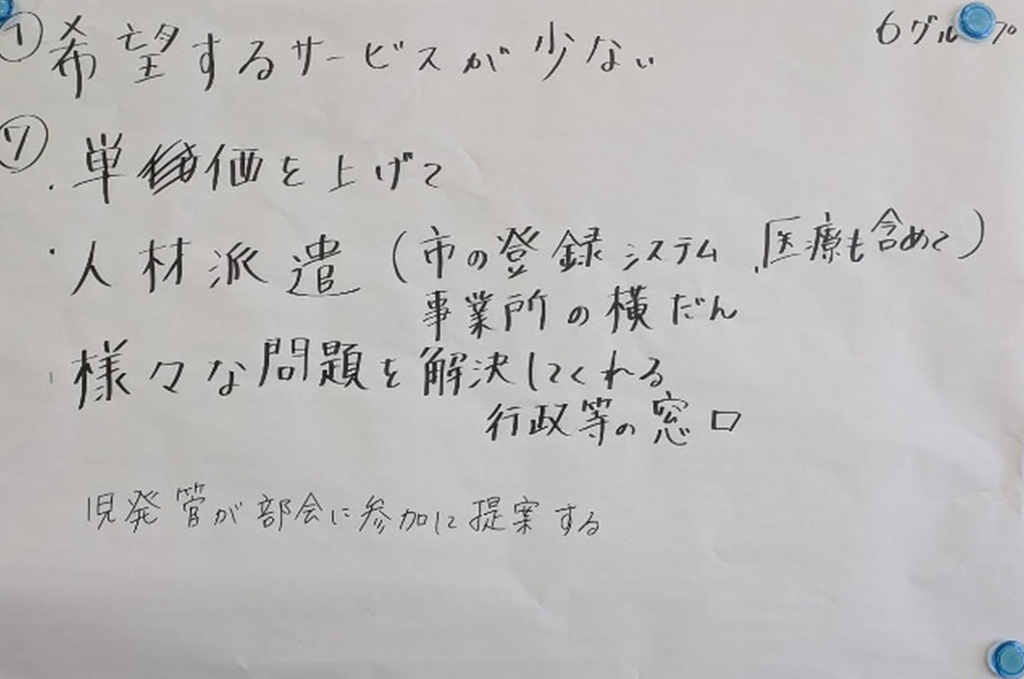 6グループ
① 希望するサービスが少ない
⑦
・単価を上げて
・人材派遣(市の登録システム、医療も含めて)
事業所の横だん
・様々な問題を解決してくれる
行政等の窓口
児発管が部会に参加に提案する